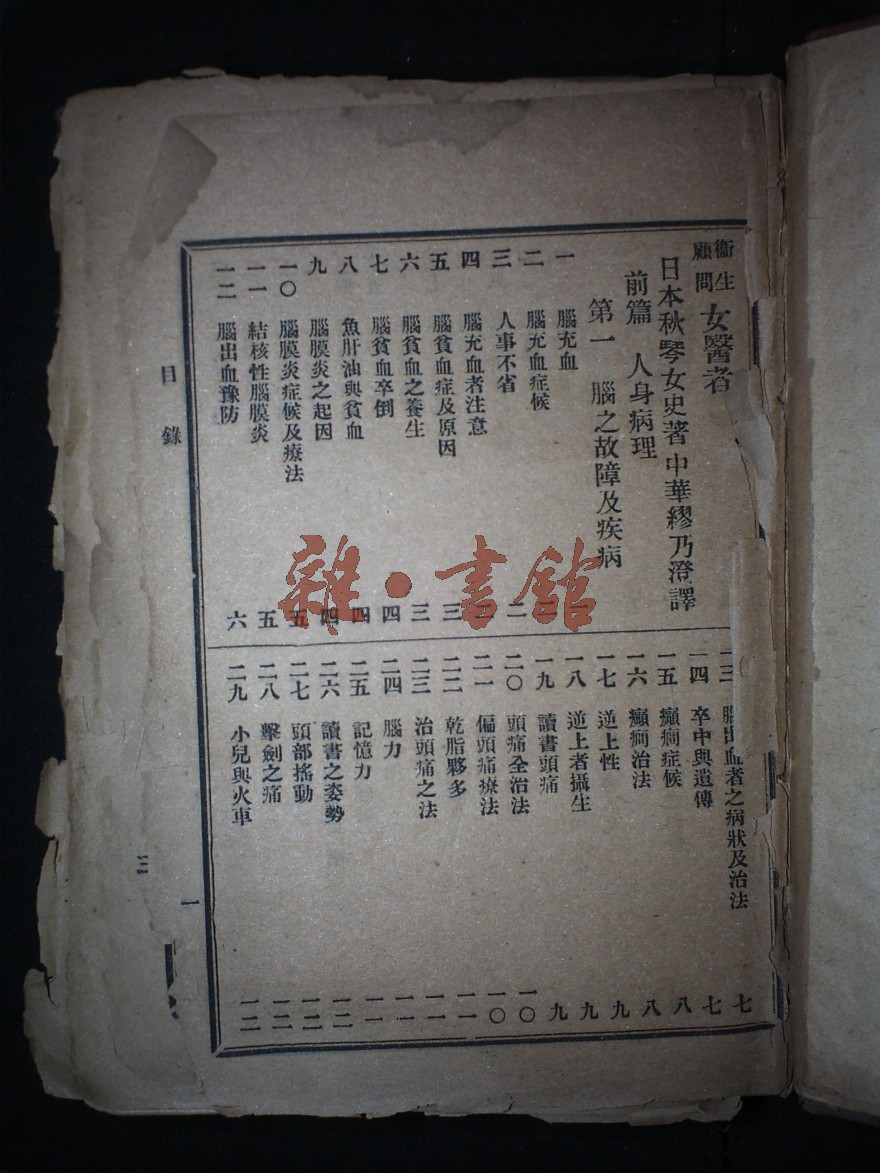 衞生顧問 女醫者
日本秋琴女史著 中華繆乃澄譯
前篇 人身病理
第一 腦之故障及疾病
一 腦充血
二 腦充血症候
三 人事不省 二
四 腦充血者注意
五 腦貧血症及原因 三
六 腦貧血之養生 三
七 腦貧血卒倒 四
八 魚肝油與貧血 四
九 腦膜炎之起因 四
一〇 腦膜炎症候及療法 五
一一 結核性腦膜炎 五
一二 腦出血豫防 六
一三 腦出血者之病狀及治法 七
一四 卒中與遺傳 七
一五 癲癇症候 八
一六 癲癇治法 八
一七 逆上性 九
一八 逆上者攝生 九
一九 讀書頭痛 九
二〇 頭痛全治法 一〇
二一 偏頭痛療法 一〇
二二 乾脂夥多 一一
二三 治頭痛之法 一一
二四 腦力 一一
二五 記憶力 一一
二六 讀書之姿勢 一二
二七 頭部搖動 一二
二八 擊劍之痛 一二
二九 小兒與火車 一二
目錄
一
三
雜·書館